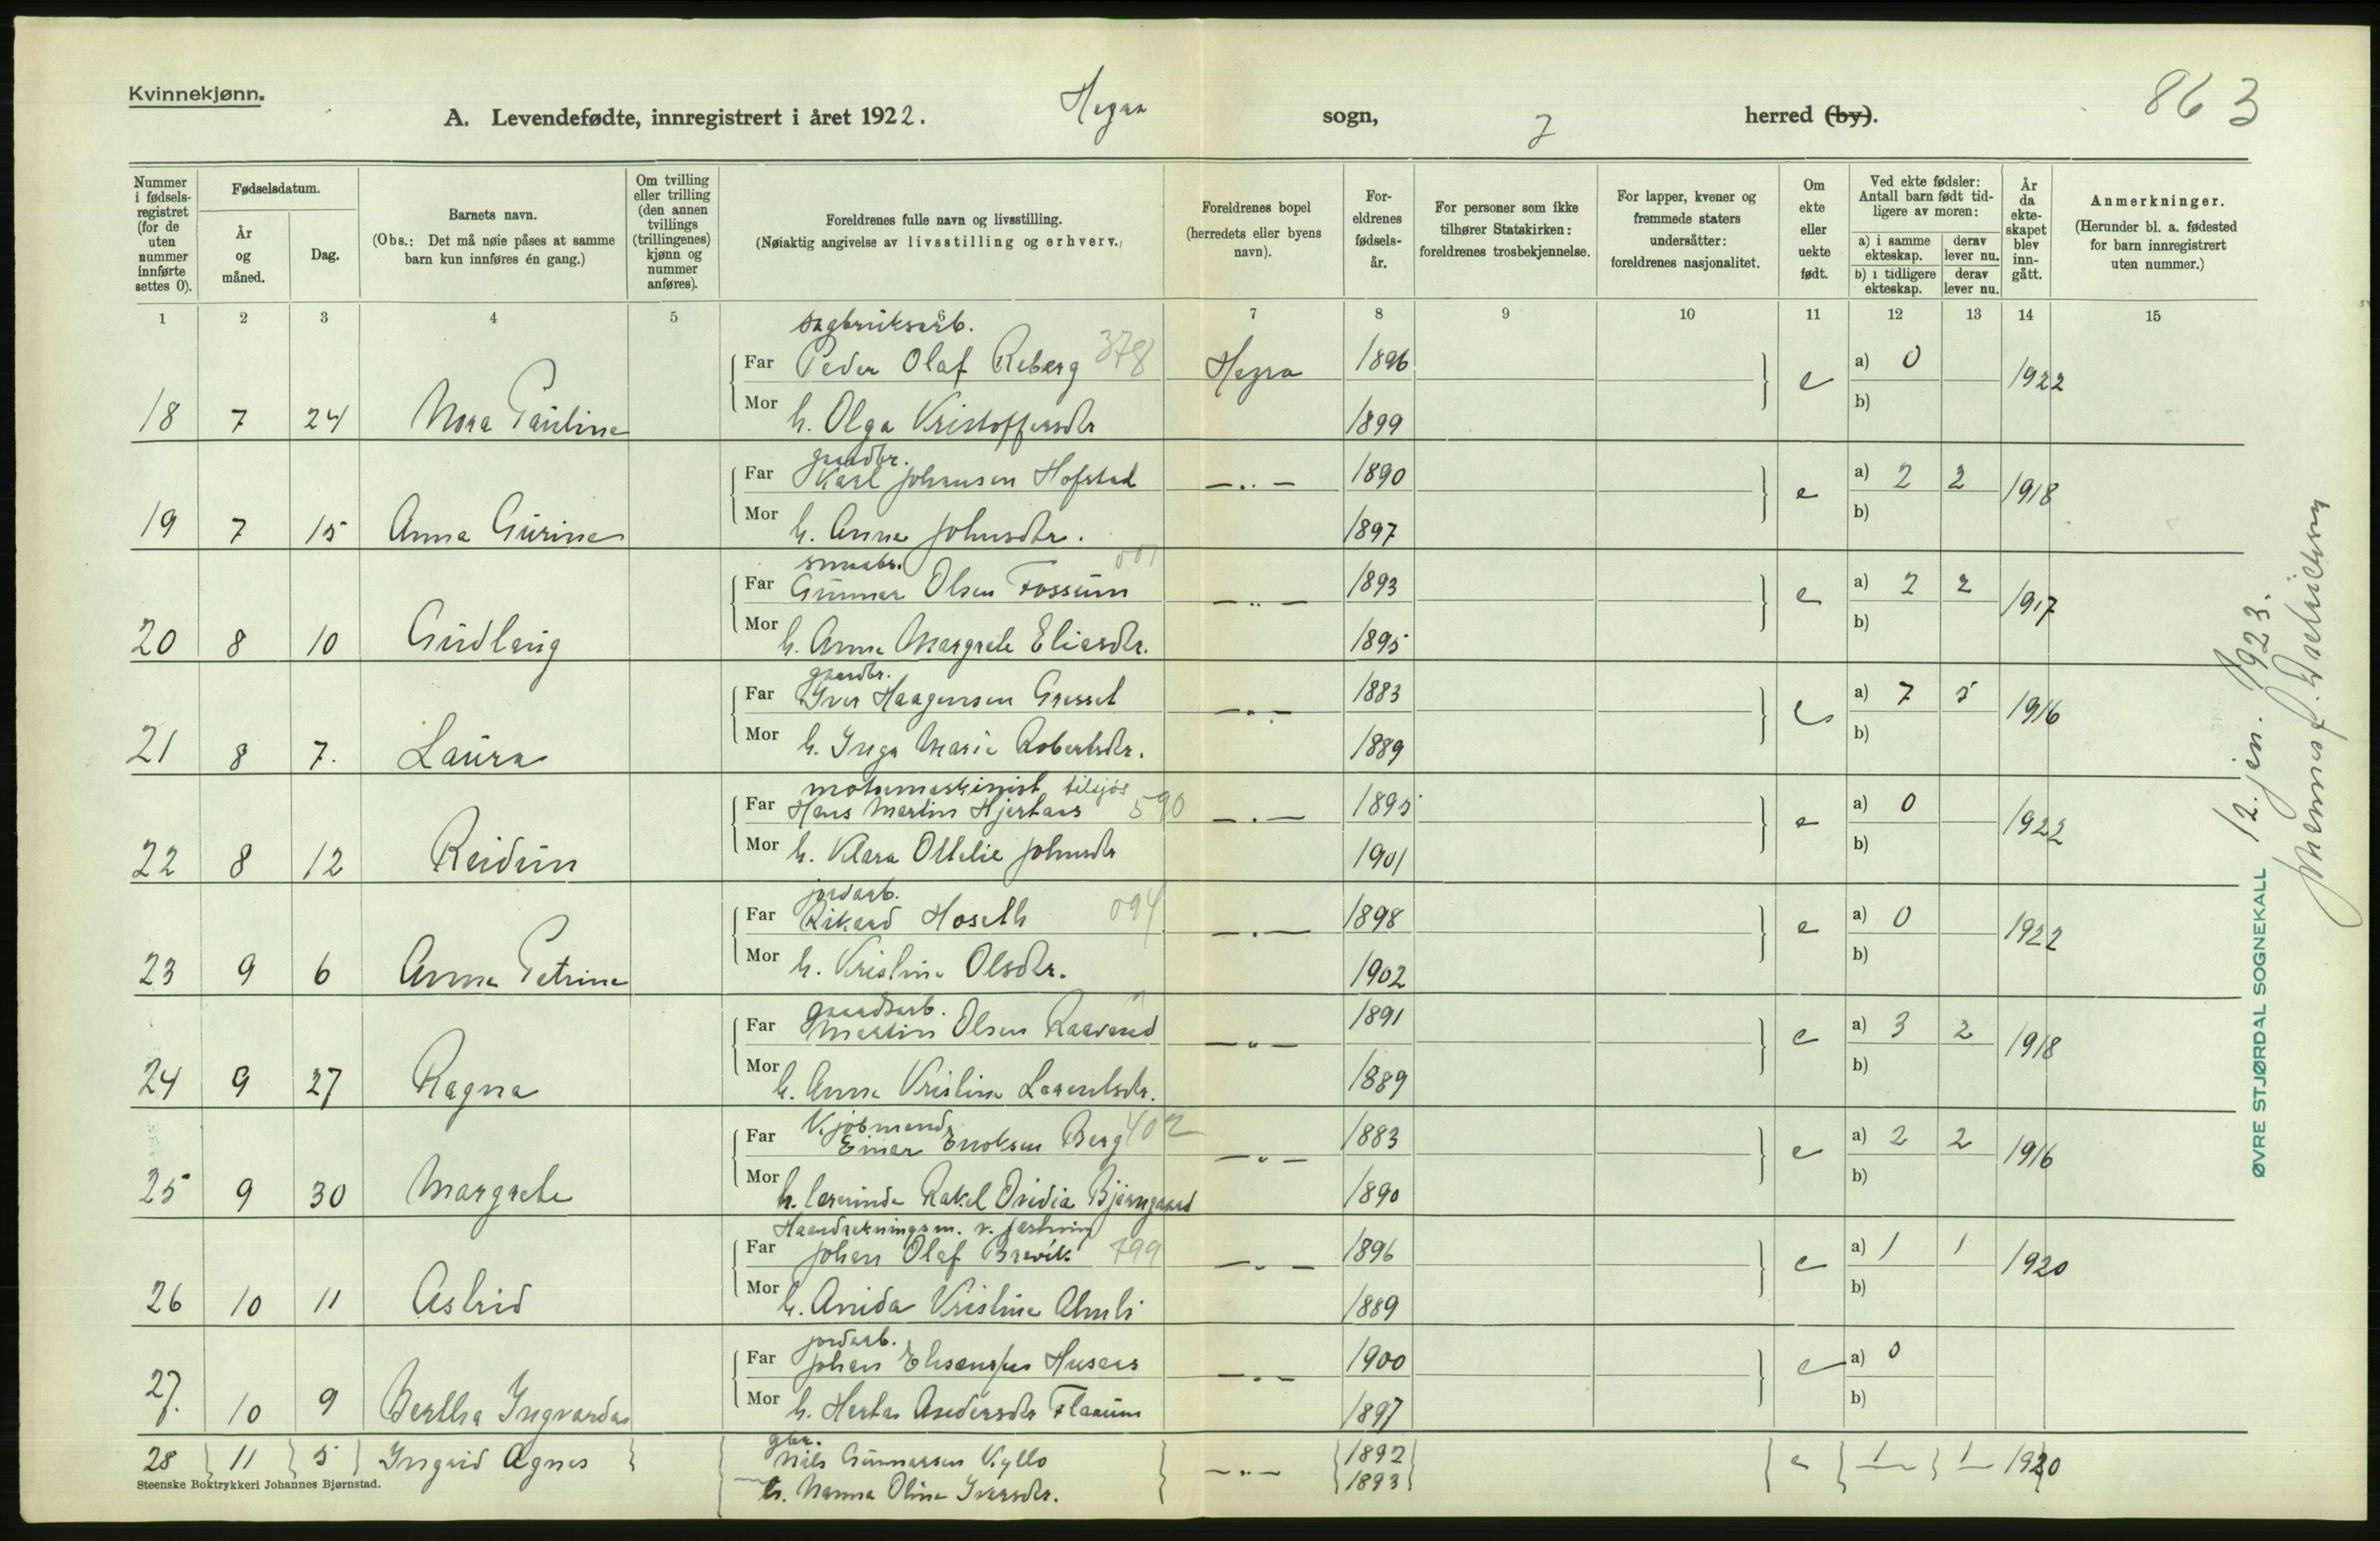 Kvinnekjønn.
A. Levendefødte, innregistrert i året 1922. Hegra sogn, 7 herred (by). 863
Nummer i fødsels-registret (for de uten nummer innførte settes 0).
Fødselsdatum.
År og måned.
Dag.
Barnets navn.
(Obs.: Det må nøie påses at samme barn kun innføres én gang.)
Om tvilling eller trilling (den annen tvillings (trillingenes) kjønn og nummer anføres).
Foreldrenes fulle navn og livsstilling.
(Nøiaktig angivelse av livsstilling og erhverv.)
Foreldrenes bopel (herredets eller byens navn).
For-eldrenes fødsels-år.
For personer som ikke tilhører Statskirken: foreldrenes trosbekjennelse.
For lapper, kvener og fremmede staters undersåtter: foreldrenes nasjonalitet.
Om ekte eller uekte født.
Ved ekte fødsler: Antall barn født tid-ligere av moren:
a) i samme ekteskap.
derav lever nu.
b) i tidligere ekteskap.
derav lever nu.
År da ekte-skapet blev inn-gått.
Anmerkninger.
(Herunder bl. a. fødested for barn innregistrert uten nummer.)
1 2 3 4 5 6 7 8 9 10 11 12 13 14 15
sagbruksarb.
Far Peder Olaf Reberg 378 Hegra 1896 e a) 0 1922
18 7 24 Nora Pauline Mor h. Olga Kristoffersdtr 1899 b)
gaardbr.
Far Karl Johansen Hofstad —..— 1890 e a) 2 2 1918
19 7 15 Anna Gurine Mor h. Anne Johnsdtr. 1897 b)
smaabr.
Far Gunnar Olsen Fossum —..— 1893 e a) 2 2 1917
20 8 10 Gudlaug Mor h. Anna Margrete Eliasdtr. 1895 b)
gaardbr.
Far Iver Haagensen Gresset —..— 1883 e a) 7 5 1916
21 8 7. Laura Mor h. Inga Marie Robertsdtr. 1889 b)
motormaskinist tilsjøs
Far Hans Martin Hjertaas 590 —..— 1895 e a) 0 1922
22 8 12 Reidun Mor h. Klara Ottelie Johnsdtr 1901 b)
jordarb.
Far Rikard Hoseth 094 —..— 1898 e a) 0 1922
23 9 6 Anna Petrine Mor h. Kristine Olsdtr. 1902 b)
gaardsarb.
Far Martin Olsen Raavand —..— 1891 e a) 3 2 1918
24 9 27 Ragna Mor h. Anna Kristine Larentsdtr. 1889 b)
Kjøbmand
Far Einar Enoksen Berg 402 —..— 1883 e a) 2 2 1916
25 9 30 Margrete Mor h. lærerinde Rakel Ovidia Bjerngaard 1890 b)
Haandrekningsm. v. festning
Far Johan Olaf Brevik 799 —..— 1896 e a) 1 1 1920
26 10 11 Astrid Mor h. Anida Kristine Almli 1889 b)
jordarb.
Far Johan Elisæus Husaas —..— 1900 e a) 0
27. 10 9 Bertha Ingvarda Mor h. Herta Andersdtr Flaaum 1897 b)
gbr.
28 11 5 Ingrid Agnes Nils Gunnarsen Kyllo —..— 1892 e 1 1 1920
h. Nanna Oline Iversdtr. 1893
Steenske Boktrykkeri Johannes Bjørnstad.
ØVRE STJØRDAL SOGNEKALL 12. jan. 1923.